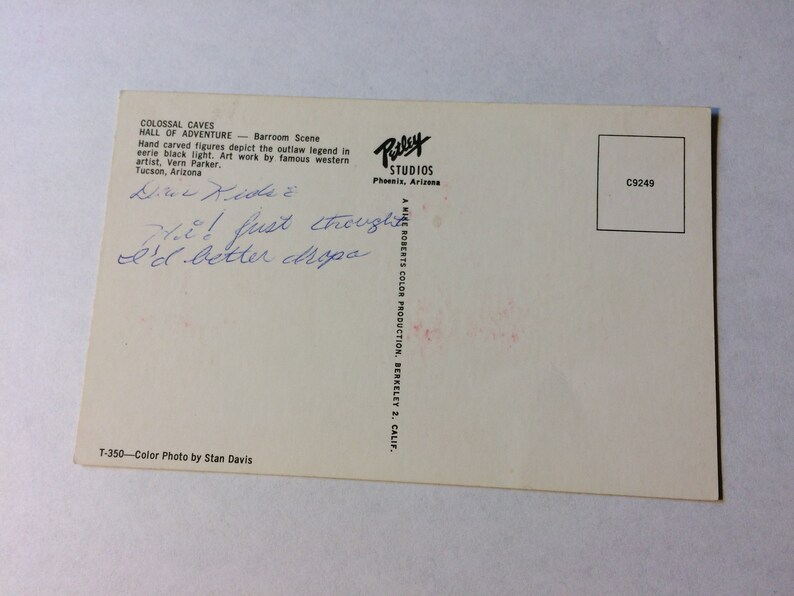 COLOSSAL CAVES
HALL OF ADVENTURE — Barroom Scene
Hand carved figures depict the outlaw legend in
eerie black light. Art work by famous western
artist, Vern Parker.
Tucson, Arizona
Dear Kids &
Hi! Just thought
I'd better drop a
T-350—Color Photo by Stan Davis
Petley
STUDIOS
Phoenix, Arizona
A MIKE ROBERTS COLOR PRODUCTION, BERKELEY 2, CALIF.
C9249